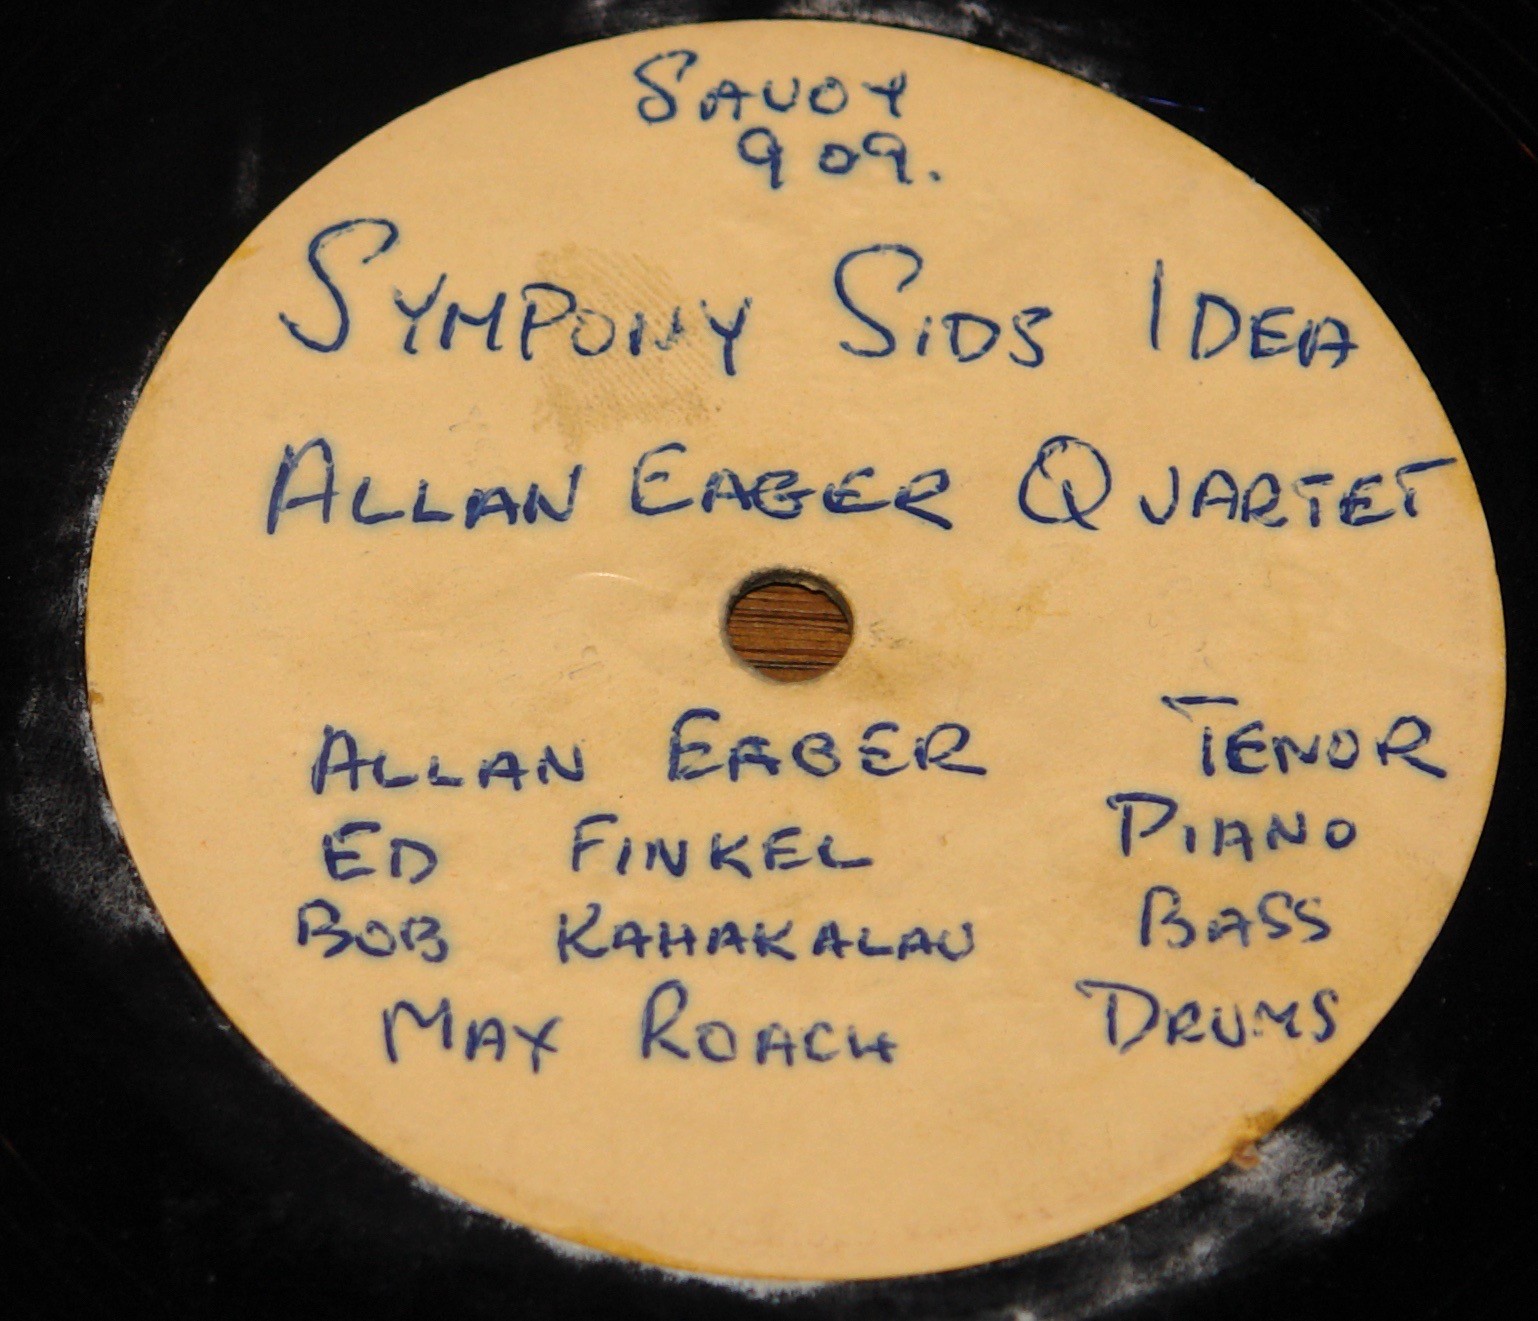 SAVOY
909.
SYMPONY SIDS IDEA
ALLAN EAGER QUARTET
ALLAN EAGER TENOR
ED FINKEL PIANO
BOB KAHAKALAU BASS
MAX ROACH DRUMS